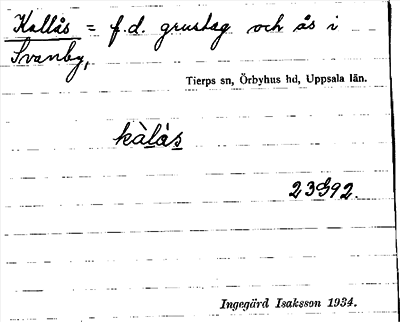 Kallås = f.d. grustag och ås i
Svanby,
Tierps sn, Örbyhus hd, Uppsala län.
kàlås
Ingegärd Isaksson 1934.